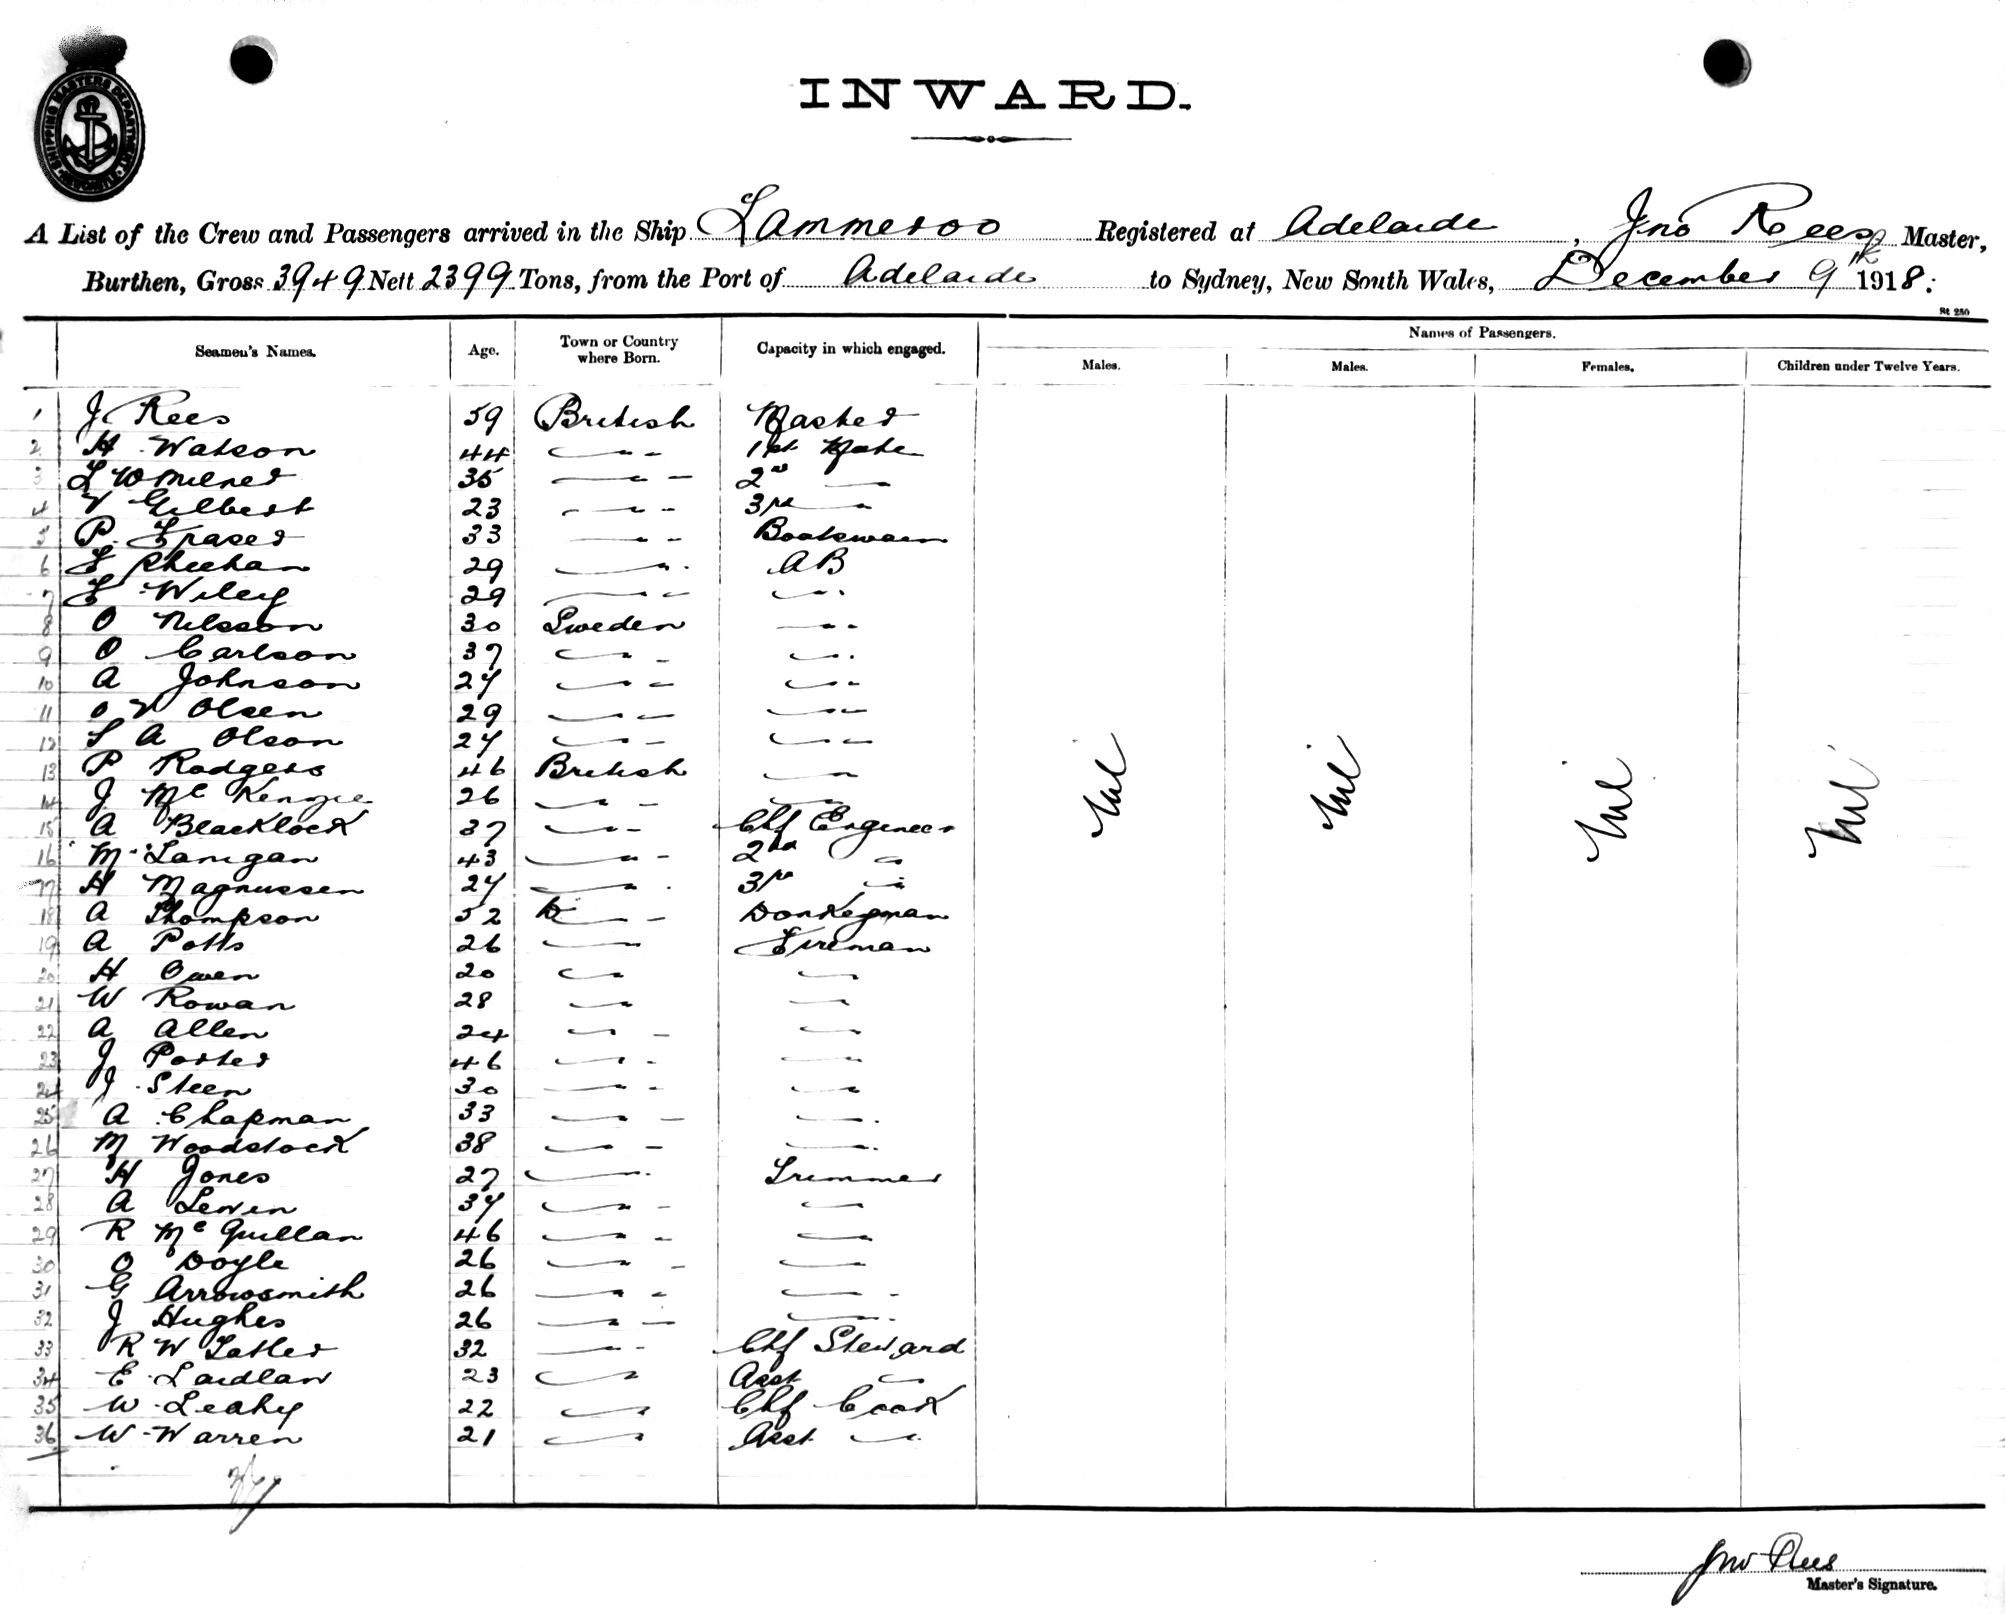 SHIPPING MASTERS DEPARTMENT
INWARD.
A List of the Crew and Passengers arrived in the Ship Lammeroo Registered at Adelaide, Jno Rees Master,
Burthen, Gross 3949 Nett 2399 Tons, from the Port of Adelaide to Sydney, New South Wales, December 9th 1918:
St 250
Seamen's Names. Age. Town or Country where Born. Capacity in which engaged. Names of Passengers.
Males. Males. Females. Children under Twelve Years.
1 J Rees 59 British Master
2 H Watson 44 — - 1st Mate
3 L W Milner 35 — - 2nd —
4 V Gilbert 23 — - 3rd —
5 P. Fraser 33 — - Boatswain
6 F Sheehan 29 — - AB
7 F Wiley 29 — - — -
8 O Nilsson 30 Sweden — -
9 O Carlson 37 — - — -
10 A Johnson 27 — - — -
11 O V Olsen 29 — - — -
12 S A Olson 27 — - — -
13 P Rodgers 46 British —
14 J McKenzie 26 — - —
15 A Blacklock 37 — - Chf Engineer
16 M Lanigan 43 — - 2nd —
17 H Magnussen 27 — - 3rd —
18 A Thompson 52 — - Donkeyman
19 A Potts 26 — Fireman
20 H Owen 20 — —
21 W Rowan 28 — —
22 A Allen 24 — - —
23 J Porter 46 — - —
24 J Steen 30 — - —
25 A Chapman 33 — - —
26 M Woodstock 38 — - —
27 H Jones 27 — Trimmer
28 A Lewin 37 — - —
29 R McQuillan 46 — - —
30 O Doyle 26 — - —
31 G Arrowsmith 26 — - — -
32 J Hughes 26 — - —
33 R W Tatler 32 — - Chf Steward
34 E Laidlaw 23 — Asst —
35 W Leahy 22 — Chf Cook
36 W Warren 21 — Asst —
Nil Nil Nil Nil
Jno Rees
Master's Signature.